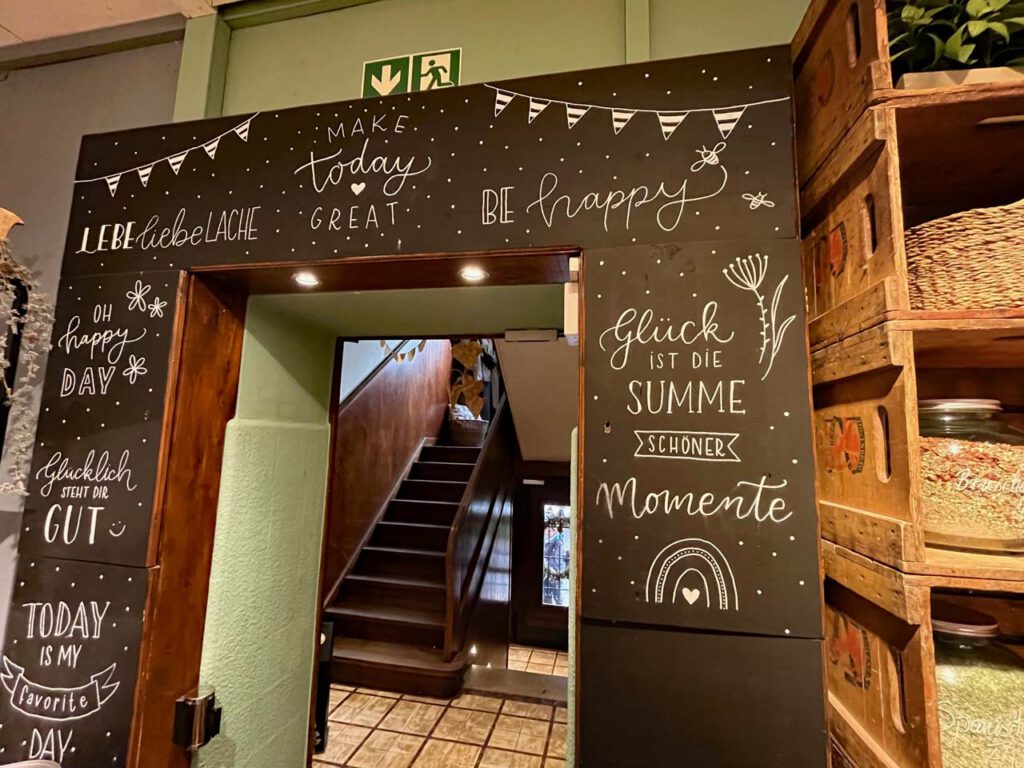 MAKE
today
GREAT
LEBE liebe LACHE
BE happy
OH
happy
DAY
Glücklich
STEHT DIR
GUT
TODAY
IS MY
favorite
DAY
Glück
IST DIE
SUMME
SCHÖNER
Momente